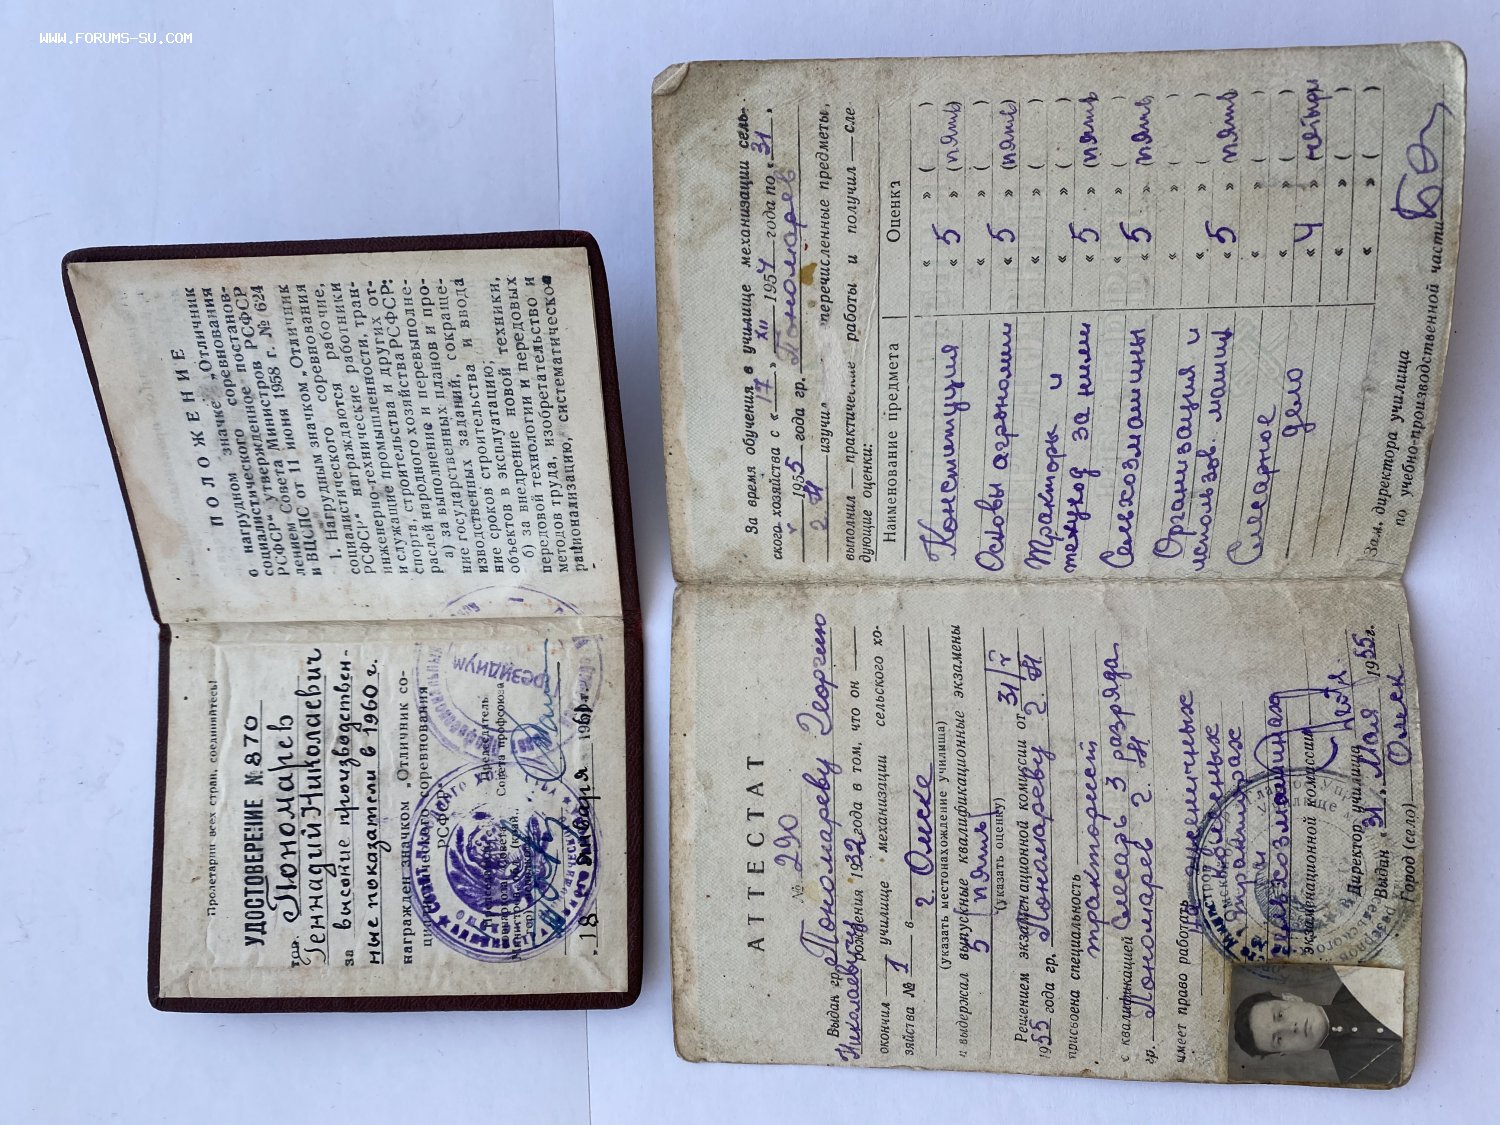 WWW.FORUMS-SU.COM
Пролетарии всех стран, соединяйтесь!
УДОСТОВЕРЕНИЕ № 870
тов. Пономарев
Геннадий Николаевич
за высокие производствен-
ные показатели в 1960 г.
награжден значком „Отличник со-
циалистического соревнования
РСФСР“
Председатель
Совета профсоюза
„18 января 1961 г.
ПОЛОЖЕНИЕ
о нагрудном значке „Отличник
социалистического соревнования
РСФСР“ утвержденное постанов-
лением Совета Министров РСФСР
и ВЦСПС от 11 июня 1958 г. № 624
1. Нагрудным значком „Отличник
социалистического соревнования
РСФСР“ награждаются рабочие,
инженерно-технические работники
и служащие промышленности, тран-
спорта, строительства и других от-
раслей народного хозяйства РСФСР:
а) за выполнение и перевыполне-
ние государственных планов и про-
изводственных заданий, сокраще-
ние сроков строительства и ввода
объектов в эксплуатацию;
б) за внедрение новой техники,
передовой технологии и передовых
методов труда, изобретательство и
рационализацию, систематическое
АТТЕСТАТ
№ 290
Выдан гр. Пономареву Георгию
Николаевичу рождения 1932 года в том, что он
окончил 1 училище механизации сельского хо-
зяйства № 1 в г. Омске
(указать местонахождение училища)
и выдержал выпускные квалификационные экзамены
5 /пять/
(указать оценку)
Решением экзаменационной комиссии от 31/V
1955 года гр. Пономареву Г. Н.
присвоена специальность
тракторист
с квалификацией Слесарь 3 разряда
гр. Пономарев Г. Н.
имеет право работать на гусеничных
тракторах и
сельхозмашинах
экзаменационной комиссии
Директор училища
Выдан „31“ Мая 1955 г.
Город (село) Омск
За время обучения в училище механизации сель-
ского хозяйства с «17» XII 1954 года по «31»
V 1955 года гр. Пономарев
Г. Н. изучил перечисленные предметы,
выполнил — практические работы и получил — сле-
дующие оценки:
Наименование предмета Оценка
Конституция «5» (пять)
Основы агрономии «5» (пять)
Тракторы и
техуход за ними «5» (пять)
Сельхозмашины «5» (пять)
Организация и
использов. машин «5» (пять)
Слесарное
дело «4» четыре
Зам. директора училища
по учебно-производственной части